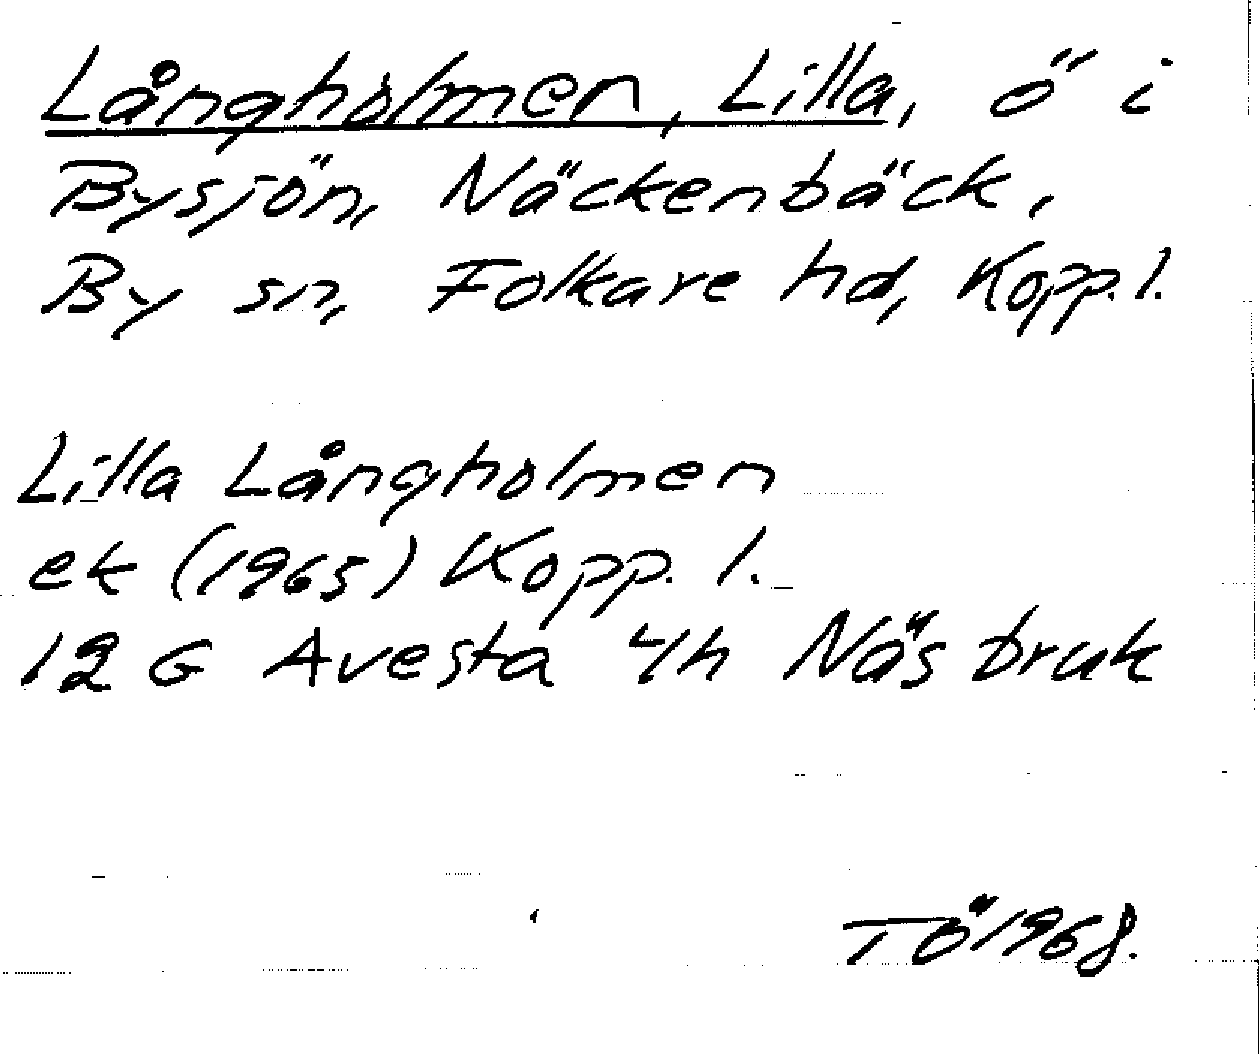 Långholmen, Lilla, ö i
Bysjön, Näckenbäck,
By sn, Folkare hd, Kopp. l.
Lilla Långholmen
ek (1965) Kopp. l.
12 G Avesta 4h Näs bruk
TÖ 1968.